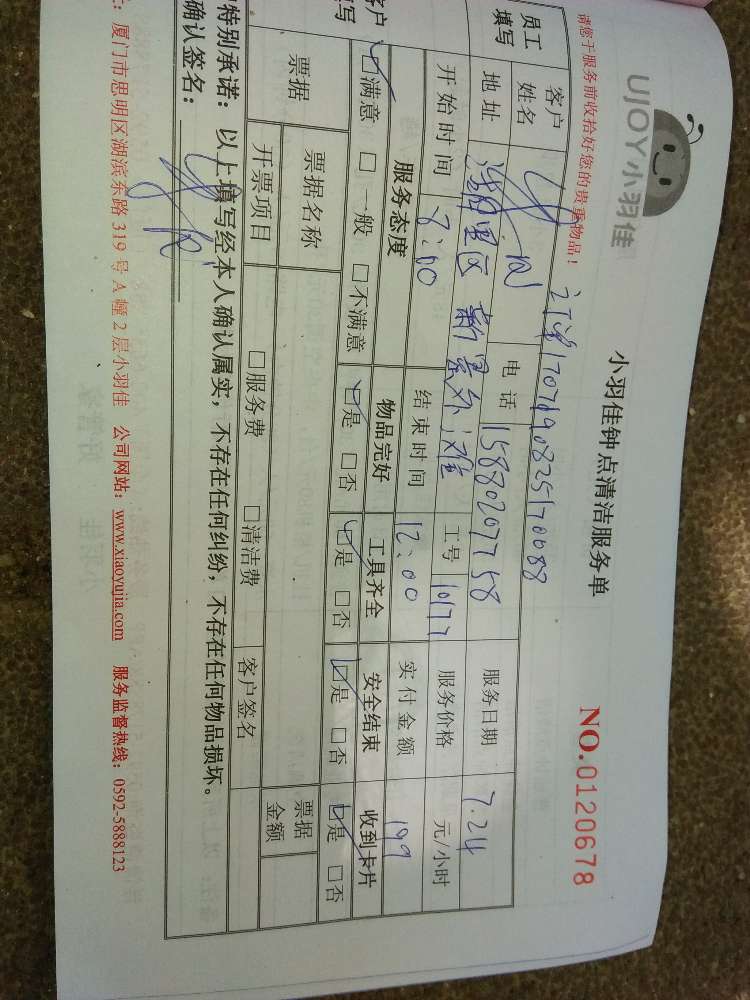 UJOY小羽佳
小羽佳钟点清洁服务单
NO.0120678
请您于服务前收拾好您的贵重物品！
170719082570088
员工填写 客户姓名 电话 15880207758 服务日期 7.24
地址 工号 10177 服务价格 元/小时
开始时间 8:00 结束时间 12:00 实付金额 199
客户 写 服务态度 物品完好 工具齐全 安全结束 收到卡片
☑满意 □一般 □不满意 ☑是 □否 ☑是 □否 ☑是 □否 ☑是 □否
票据 票据名称 票据金额
开票项目 □服务费 □清洁费 客户签名
特别承诺：以上填写经本人确认属实，不存在任何纠纷，不存在任何物品损坏。
确认签名：
：厦门市思明区湖滨东路 319 号 A 幢 2 层小羽佳 公司网站：www.xiaoyujia.com 服务监督热线：0592-5888123